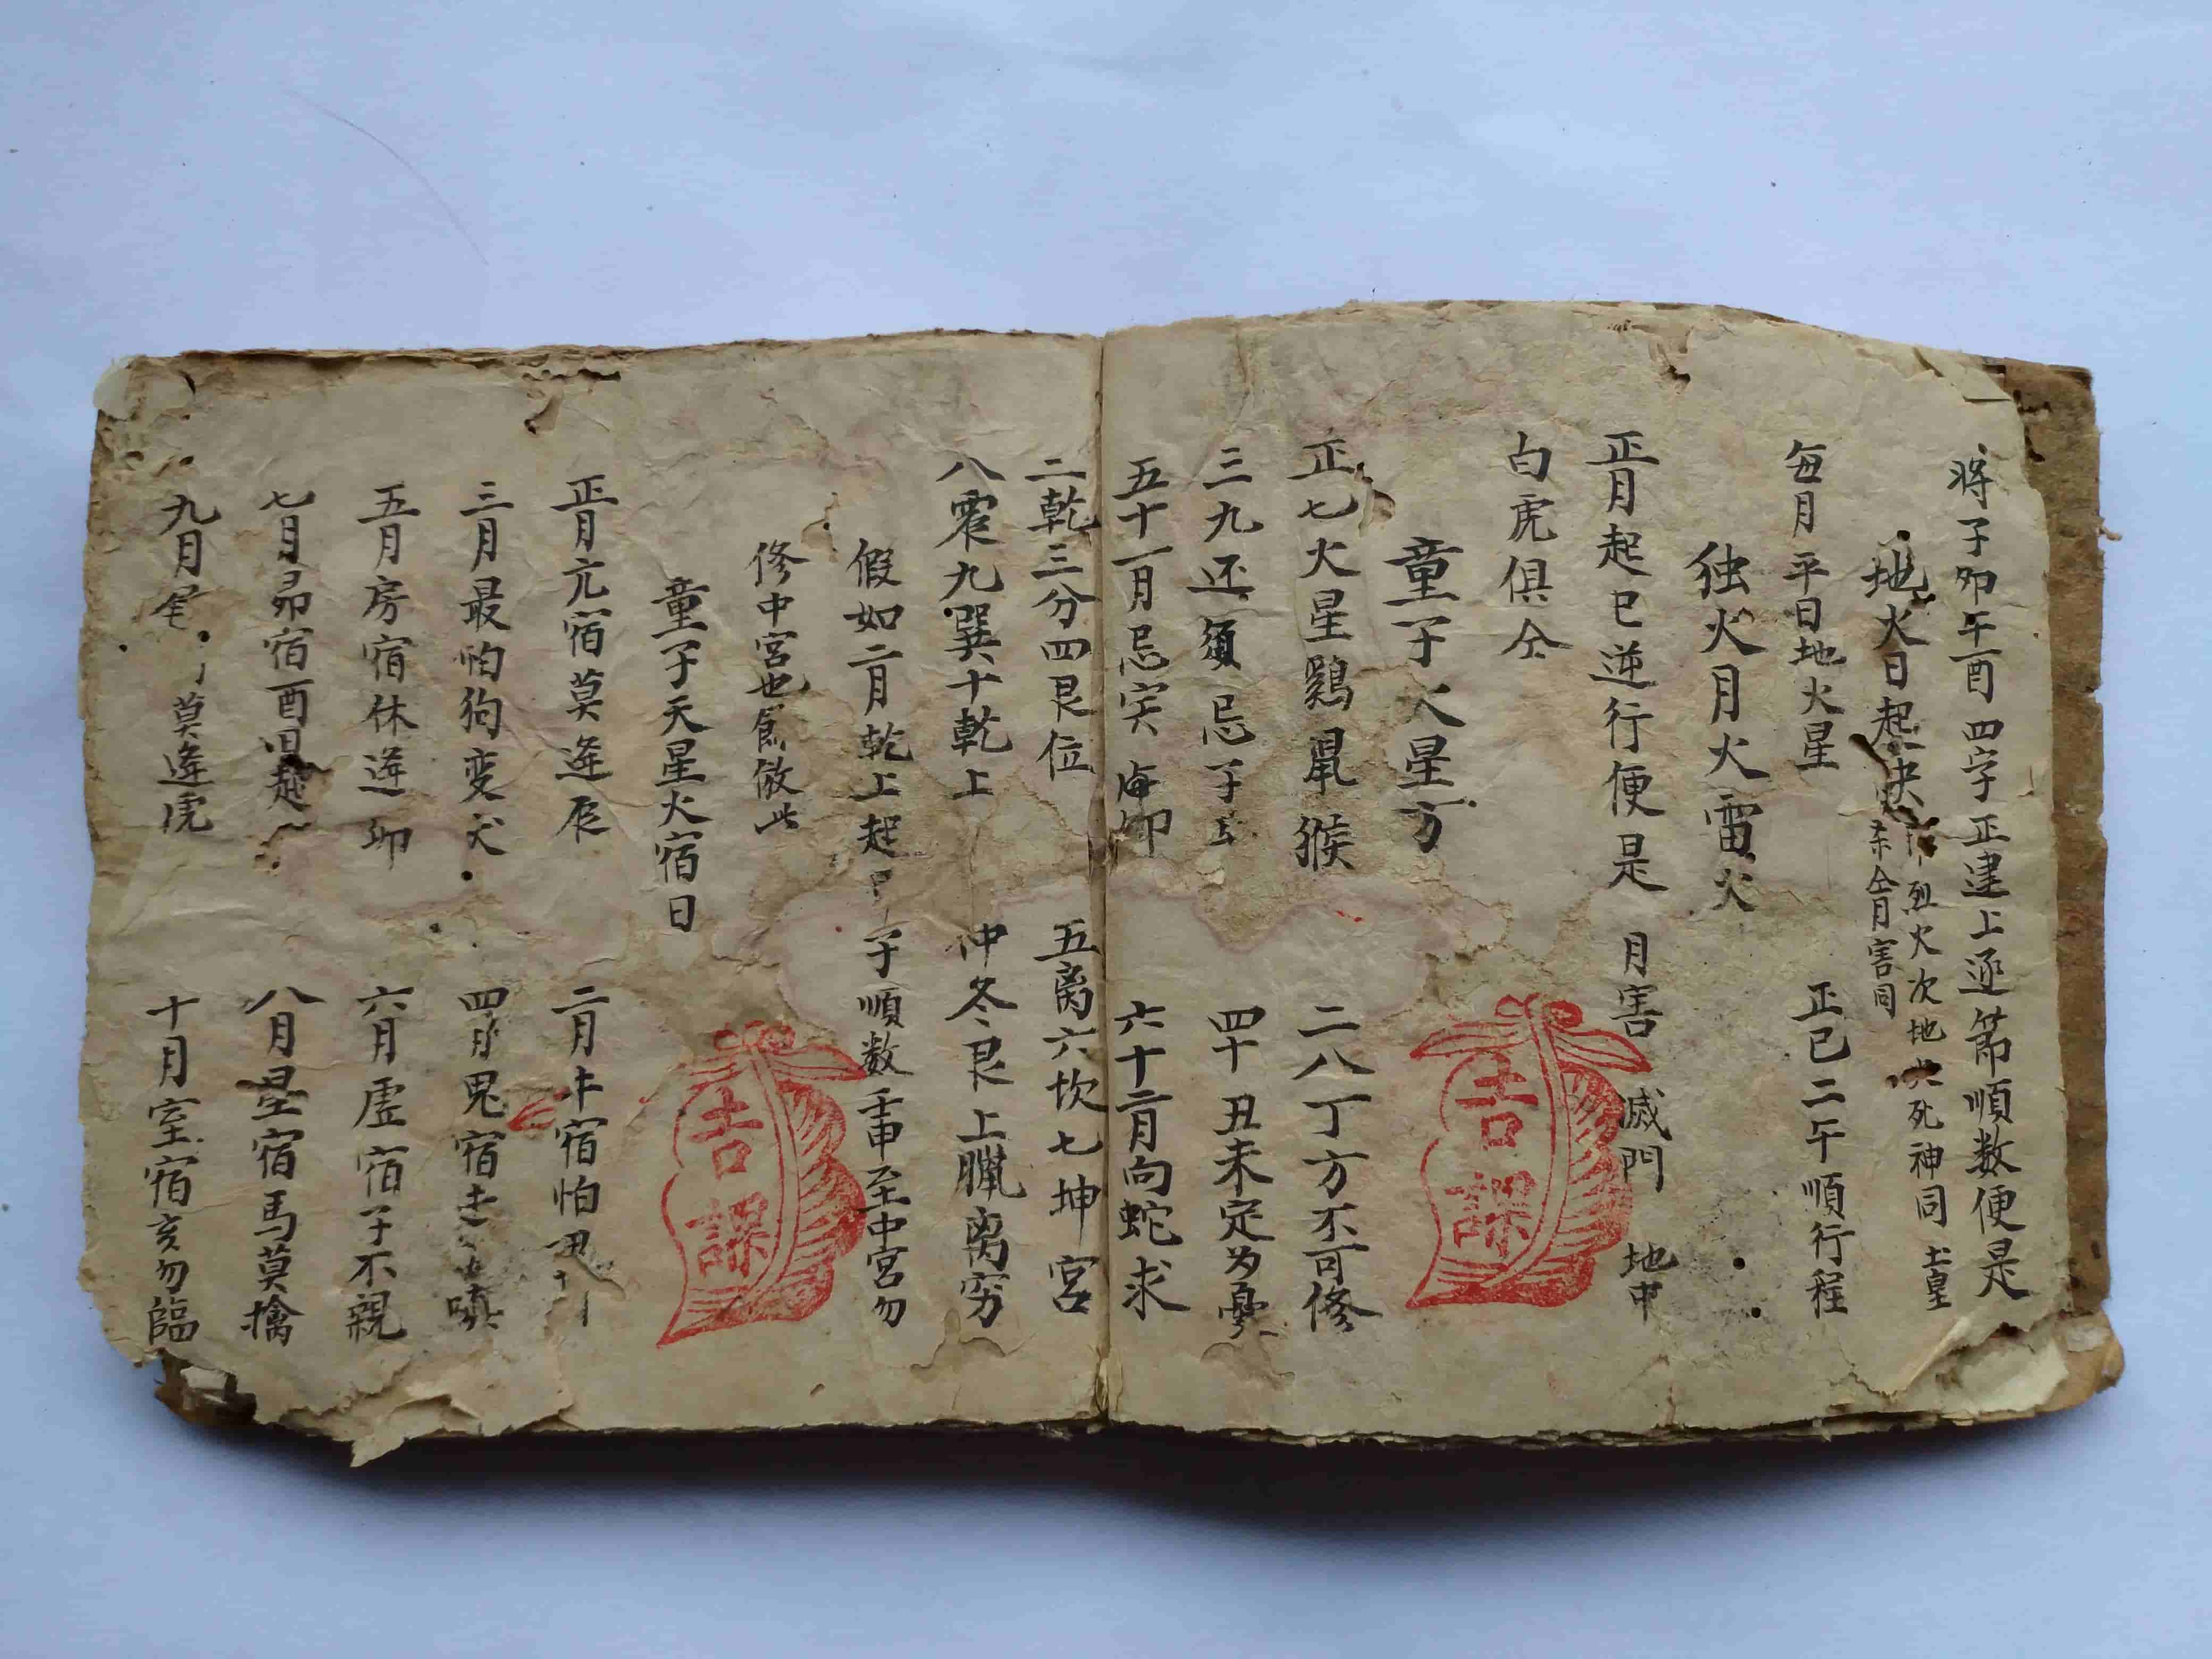 将子卯午酉四字正建上逐節順数便是
地火日起决
烈火次地火死神同 土皇
忝仝月害同
每月平日地火星 正巳二午順行程
独火月火雷火
正月起巳逆行便是 月害 滅門 地中
白虎俱仝
童子火星方
正七火星鷄鼠猴 二八丁方不可修
三九还須忌子 四十丑未定为憂
五十一月忌寅卯 六十二月向蛇求
二乾三分四艮位 五离六坎七坤宮
八震九巽十乾上 仲冬艮上臘离穷
假如二月乾上起甲子順数壬申至中宮勿
修中宮也餘倣此
童子天星火宿日
正月亢宿莫逢辰 二月牛宿怕丑
三月最怕狗变犬 四月鬼宿 嗔
五月房宿休逢卯 六月虚宿子不親
七月昴宿酉日起 八月星宿馬莫擒
九月尾 莫逢虎 十月室宿亥勿臨
吉課
吉課